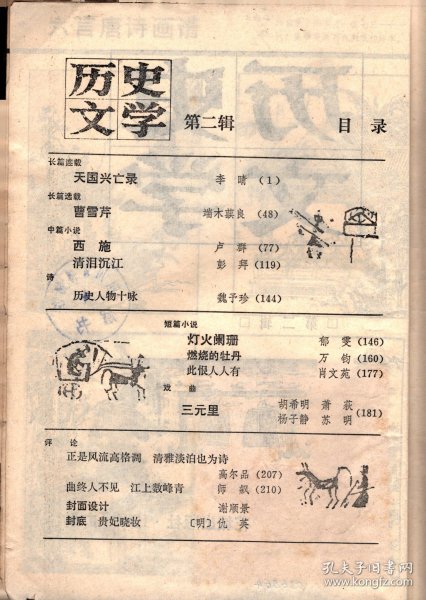 历史
文学
第二辑
目录
长篇连载
天国兴亡录 李晴 (1)
长篇选载
曹雪芹 端木蕻良 (48)
中篇小说
西施 卢群 (77)
清泪沉江 彭拜 (119)
诗
历史人物十咏 魏予珍 (144)
短篇小说
灯火阑珊 郁雯 (146)
燃烧的牡丹 万钧 (160)
此恨人人有 肖文苑 (177)
戏曲
三元里 胡希明 萧荻 杨子静 苏明 (181)
评论
正是风流高格调 清雅淡泊也为诗
高尔品 (207)
曲终人不见 江上数峰青 师飙 (210)
封面设计 谢顺景
封底 贵妃晓妆 [明] 仇英
孔夫子旧书网
www.kongfz.com